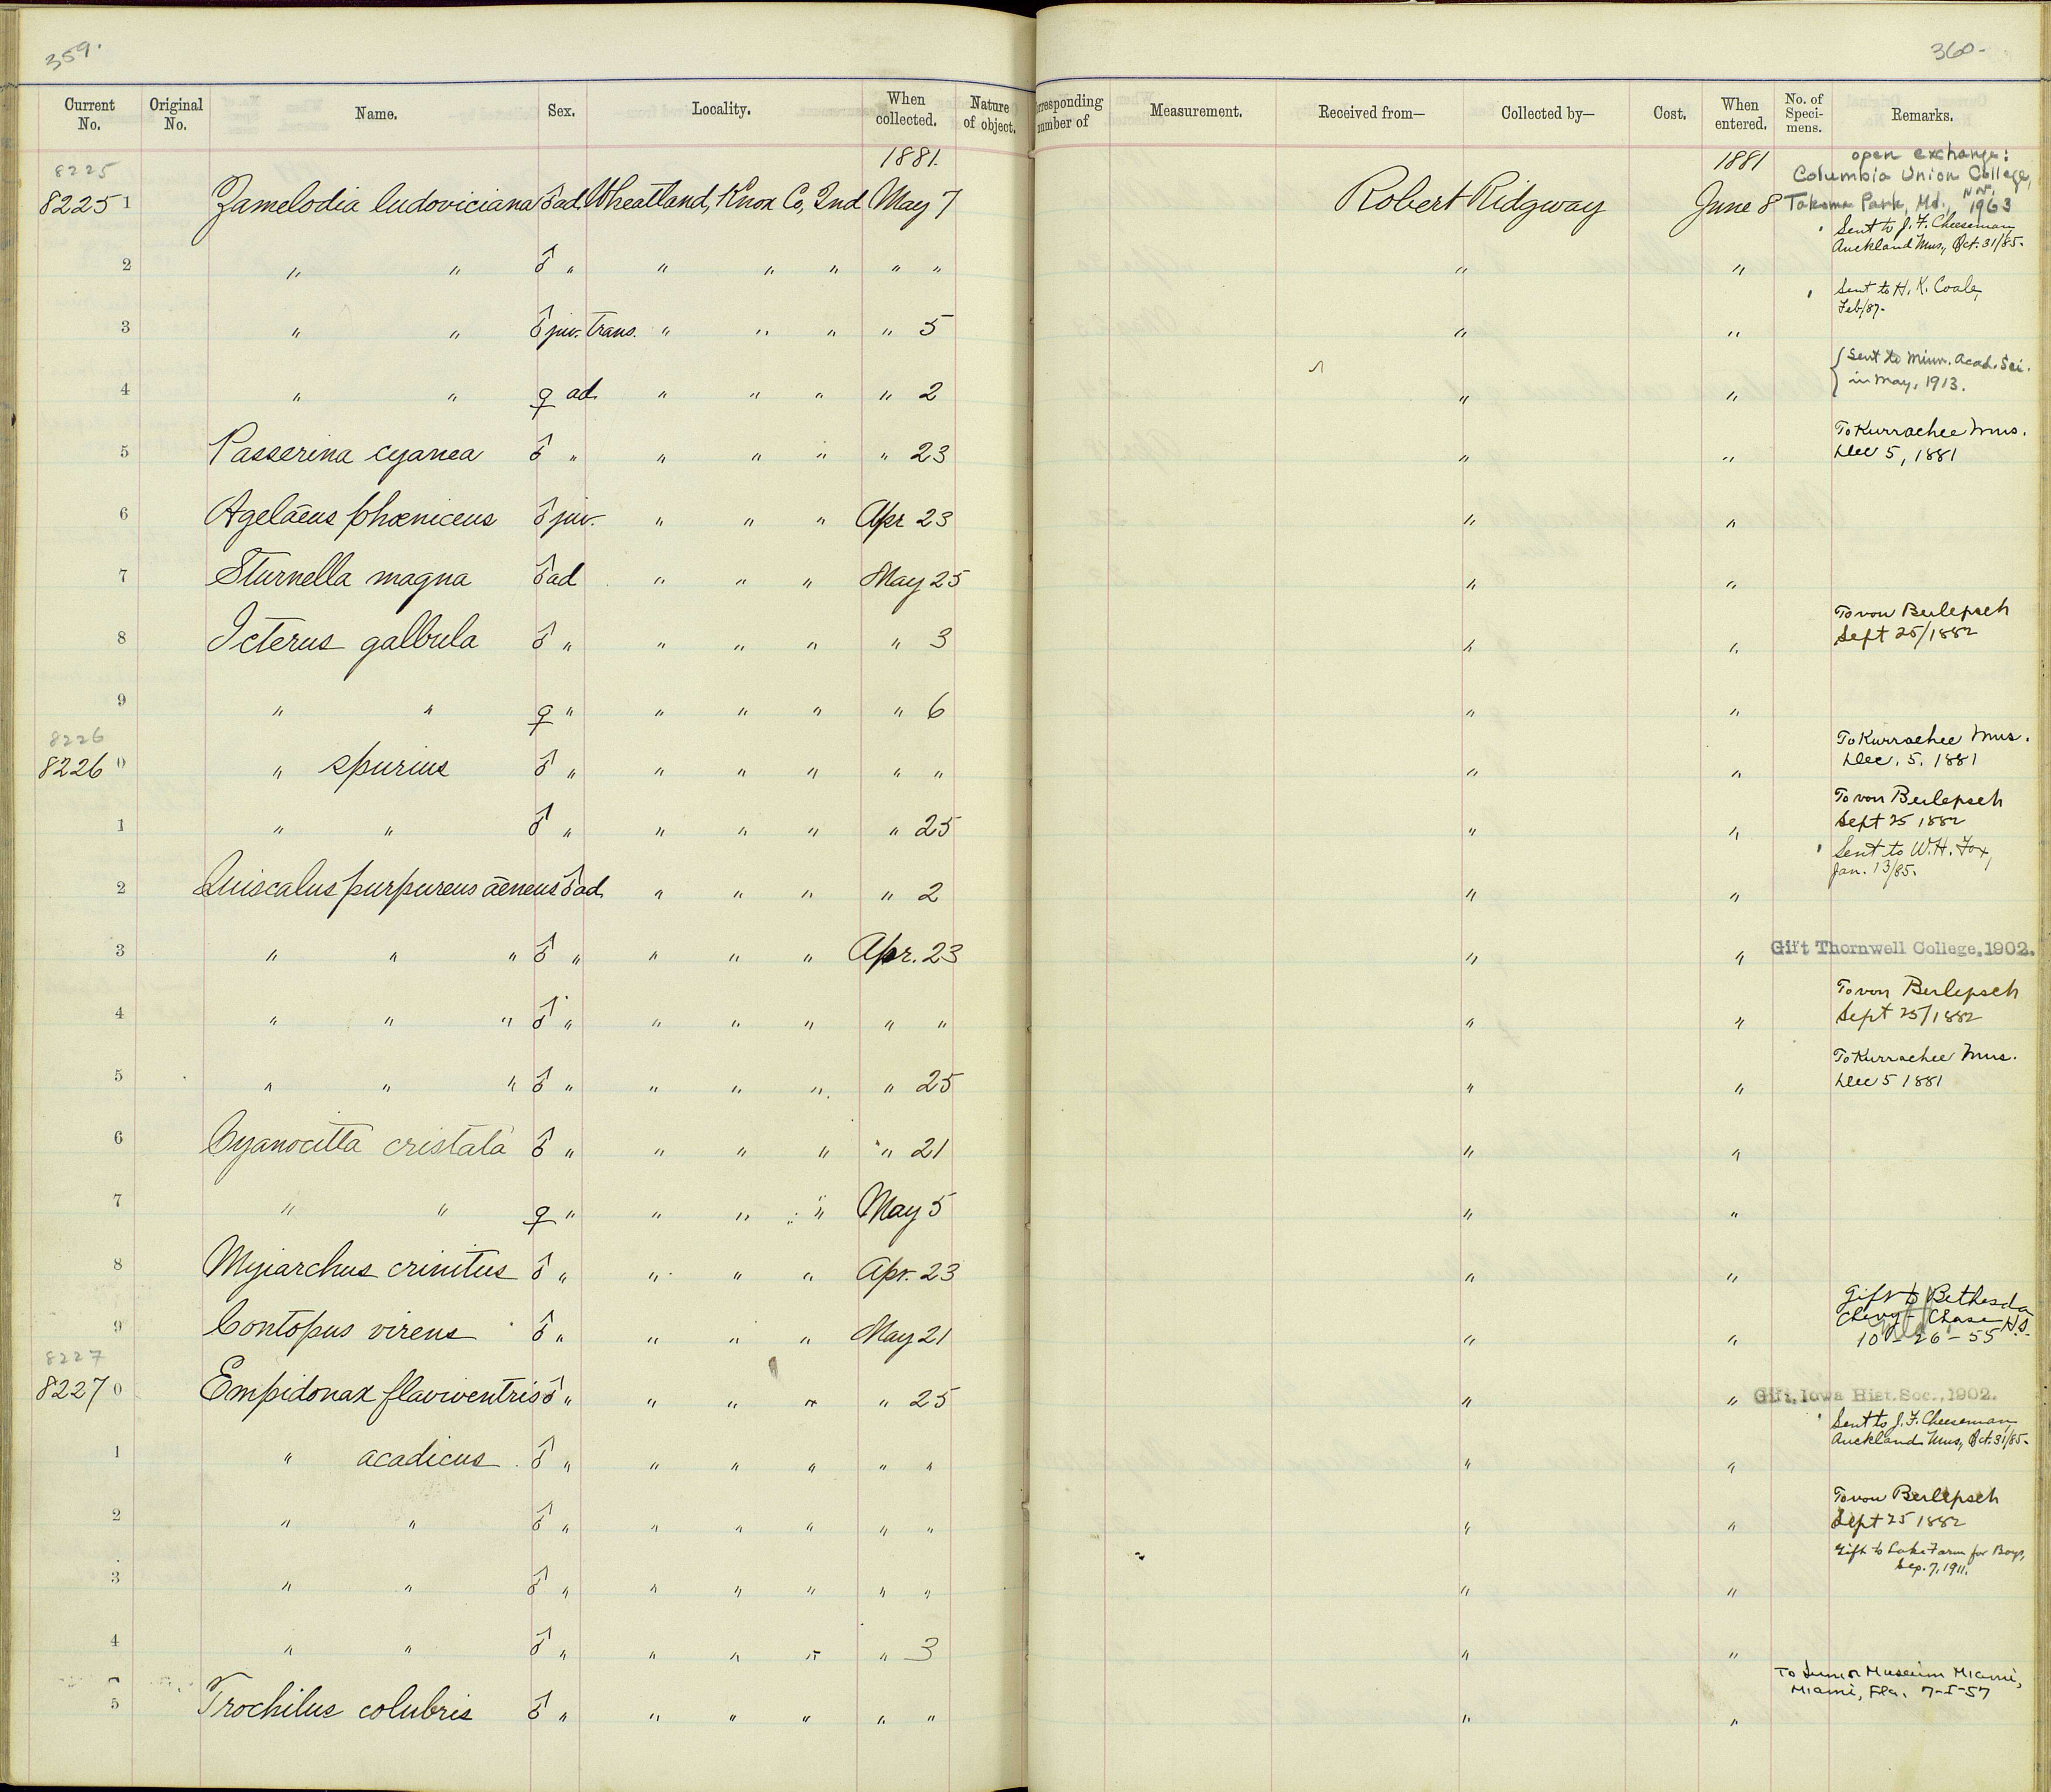 359.
360-
Current No. Original No. Name. Sex. Locality. When collected. Nature of object. rresponding number of Measurement. Received from— Collected by— Cost. When entered. No. of Specimens. Remarks.
1881. 1881 open exchange:
8225 Columbia Union College,
82251 Zamelodia ludoviciana ♂ ad. Wheatland, Knox Co, Ind May 7 Robert Ridgway June 8 Takoma Park, Md., Nov. 1963
Sent to J. F. Cheeseman,
Auckland Mus., Oct. 31/85.
2 " " ♂ " " " " " " " "
Sent to H. K. Coale,
Feb/87.
3 " " ♂ juv. trans. " " " " 5 " "
{ Sent to Minn. Acad. Sci.
in May, 1913.
4 " " ♀ ad. " " " " 2 " "
To Kurrachee Mus.
5 Passerina cyanea ♂ " " " " " 23 " " Dec 5, 1881
6 Agelaeus phoeniceus ♂ juv. " " " Apr 23 " "
7 Sturnella magna ♂ ad " " " May 25 " "
To von Berlepsch
8 Icterus galbula ♂ " " " " " 3 " " Sept 25/1882
9 " " ♀ " " " " " 6 " "
8226 To Kurrachee Mus.
82260 " spurius ♂ " " " " " " " " Dec. 5. 1881
To von Berlepsch
1 " " ♂ " " " " " 25 " " Sept 25 1882
Sent to W. H. Fox,
Jan. 13/85.
2 Quiscalus purpureus aeneus ♂ ad. " " " " 2 " "
3 " " " ♂ " " " " Apr. 23 " " Gift Thornwell College, 1902.
To von Berlepsch
4 " " " ♂ " " " " " " " " Sept 25/1882
To Kurrachee Mus.
5 " " " ♂ " " " " " 25 " " Dec 5 1881
6 Cyanocitta cristata ♂ " " " " " 21 " "
7 " " ♀ " " " " May 5 " "
8 Myiarchus crinitus ♂ " " " " Apr. 23 " "
Gift to Bethesda
Chevy Chase H.S.
9 Contopus virens ♂ " " " " May 21 " " 10-26-55
8227
82270 Empidonax flaviventris ♂ " " " " " 25 " " Gift, Iowa Hist. Soc., 1902.
Sent to J. F. Cheeseman,
Auckland Mus., Oct. 31/85.
1 " acadicus ♂ " " " " " " " "
To von Berlepsch
2 " " ♂ " " " " " " " " Sept 25 1882
Gift to Lake Farm for Boys,
Sep. 7, 1911.
3 " " ♂ " " " " " " " "
4 " " ♂ " " " " " 3 " "
To Junior Museum Miami,
Miami, Fla. 7-5-57
5 Trochilus colubris ♂ " " " " " " " "